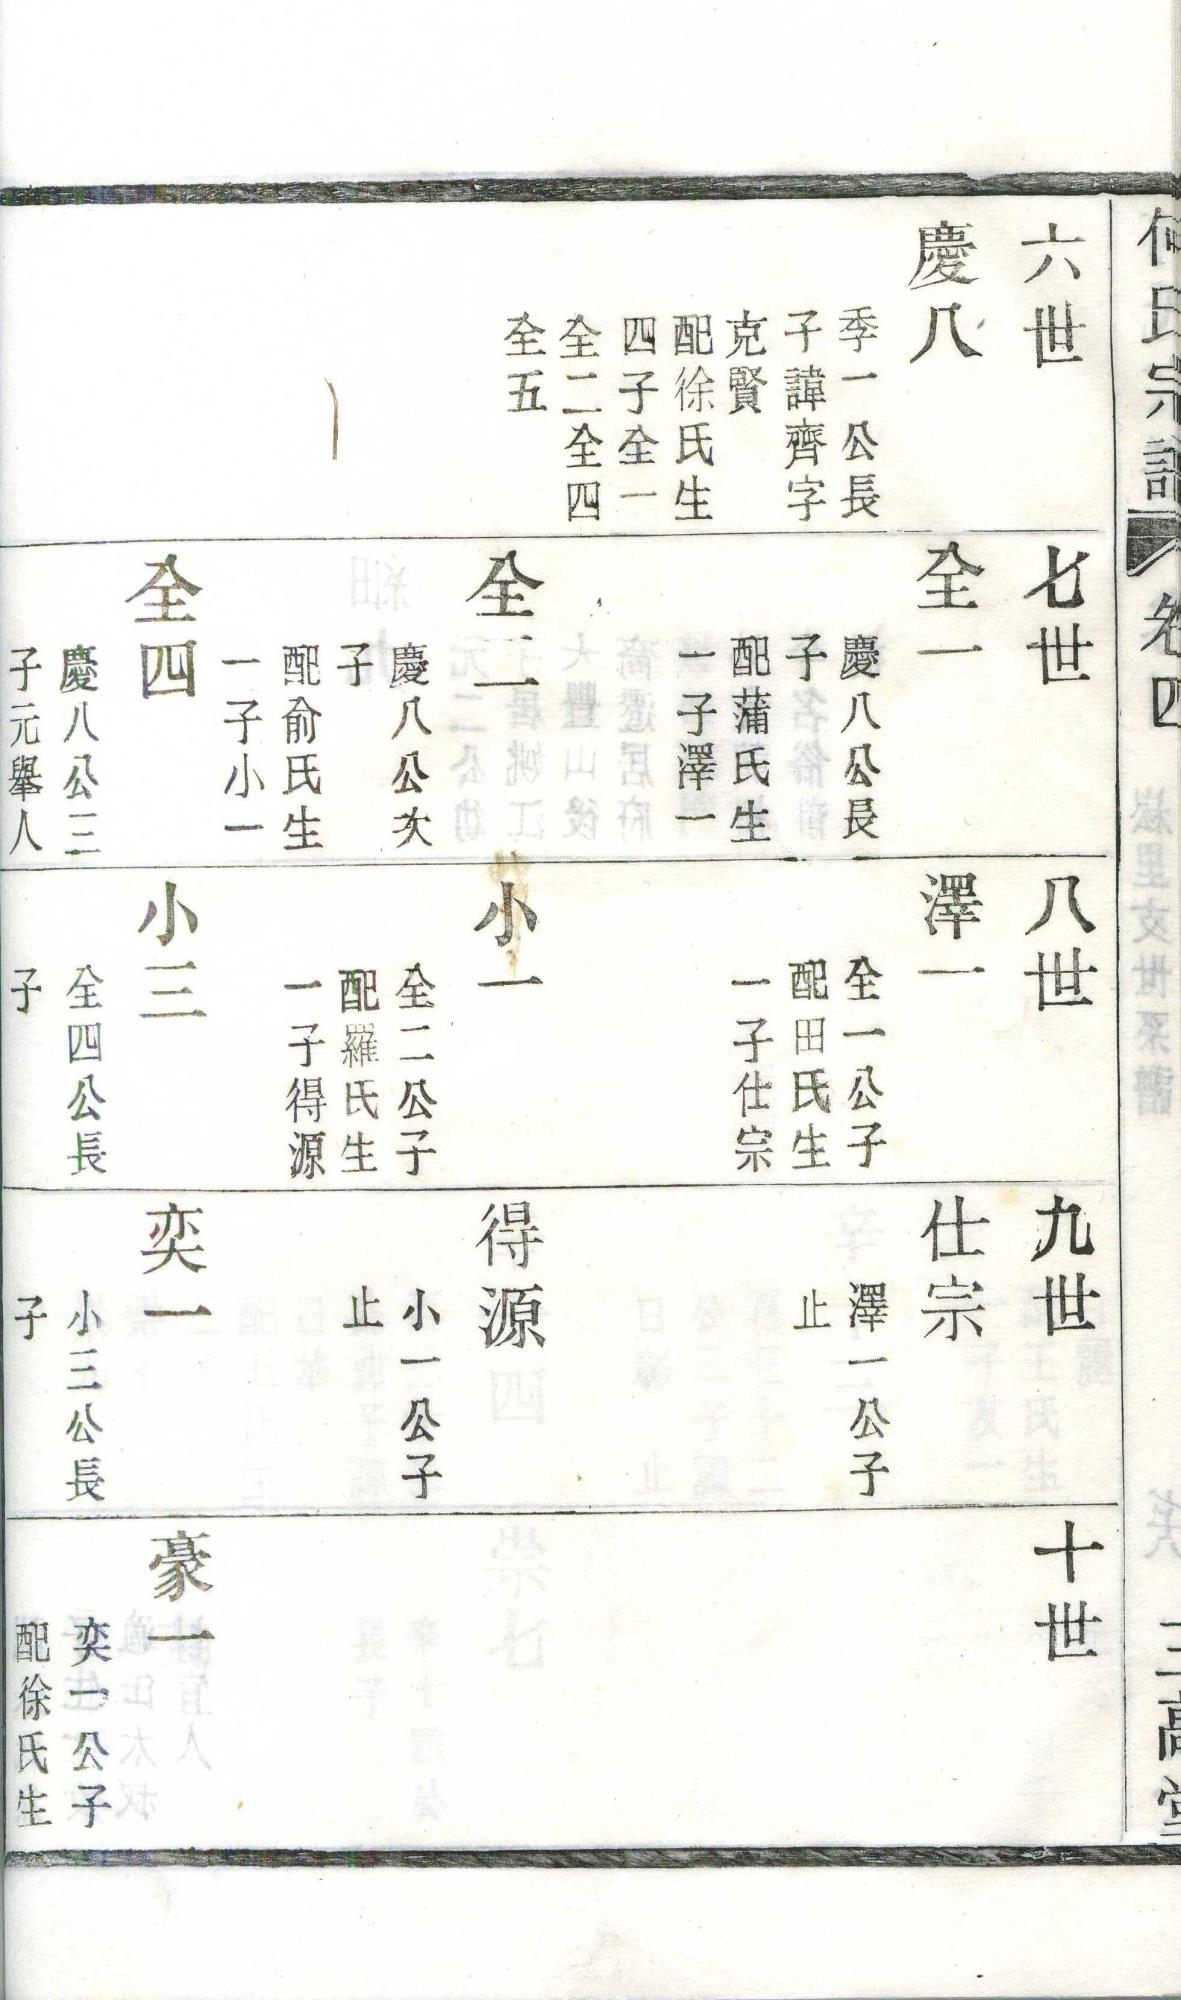 何氏宗譜
卷四
三高堂
六世
慶八
季一公長
子諱齊字
克賢
配徐氏生
四子全一
全二全四
全五
七世
全一
慶八公長
子
配蒲氏生
一子澤一
全二
慶八公次
子
配俞氏生
一子小一
全四
慶八公三
子元舉人
八世
澤一
全一公子
配田氏生
一子仕宗
小一
全二公子
配羅氏生
一子得源
小三
全四公長
子
九世
仕宗
澤一公子
止
得源
小一公子
止
奕一
小三公長
子
十世
豪一
奕一公子
配徐氏生